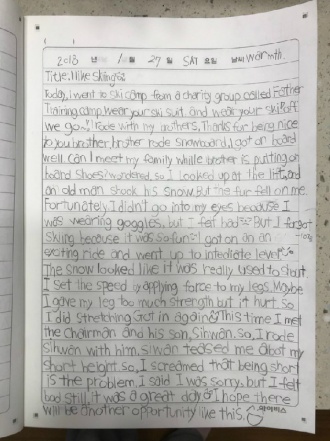 2018 년 1월 27일 SAT 요일 날씨 warmth.
Title: I like Skiing
Today, I went to ski camp from a charity group called Father
Training camp. wear your ski suit and wear your ski off
we go~! I rode with my brothers, Thanks for being nice
to you brother brother rode snowboard, I got on board
well. Can I meet my family while brother is putting on
board shoes? wondered, so I looked up at the lift, and
an old man shook his snow. But the fur fell on me.
Fortunately I didn't go into my eyes because I
was wearing goggles, but I felt bad But I forgot
skiing because it was so fun~! I got on an an
exciting ride and went up to intediate level
The snow looked like it was really used to start
I set the speed by applying force to my legs. Maybe
I gave my leg too much strength but it hurt. so
I did stretching Got in again This time I met
the Chairman and his son, Sihwan. So, I rode
Sihwan with him. Sihwan teased me about my
short height. so, I screamed that being short
is the problem. I said I was sorry. but I felt
bad still, it was a great day I hope there
will be another opportunity like this.